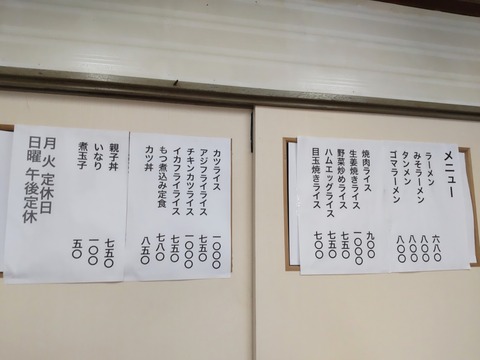 メニュー
ラーメン 六八〇
みそラーメン 八〇〇
タンメン 八〇〇
ゴマラーメン 八〇〇
焼肉ライス 九〇〇
生姜焼きライス 一〇〇〇
野菜炒めライス 七五〇
ハムエッグライス 七五〇
目玉焼きライス 七〇〇
カツライス 一〇〇〇
アジフライライス 七五〇
チキンカツライス 一〇〇〇
イカフライライス
もつ煮込み定食 七八〇
カツ丼 八五〇
親子丼 七五〇
いなり 一〇〇
煮玉子 五〇
月火 定休日
日曜 午後定休